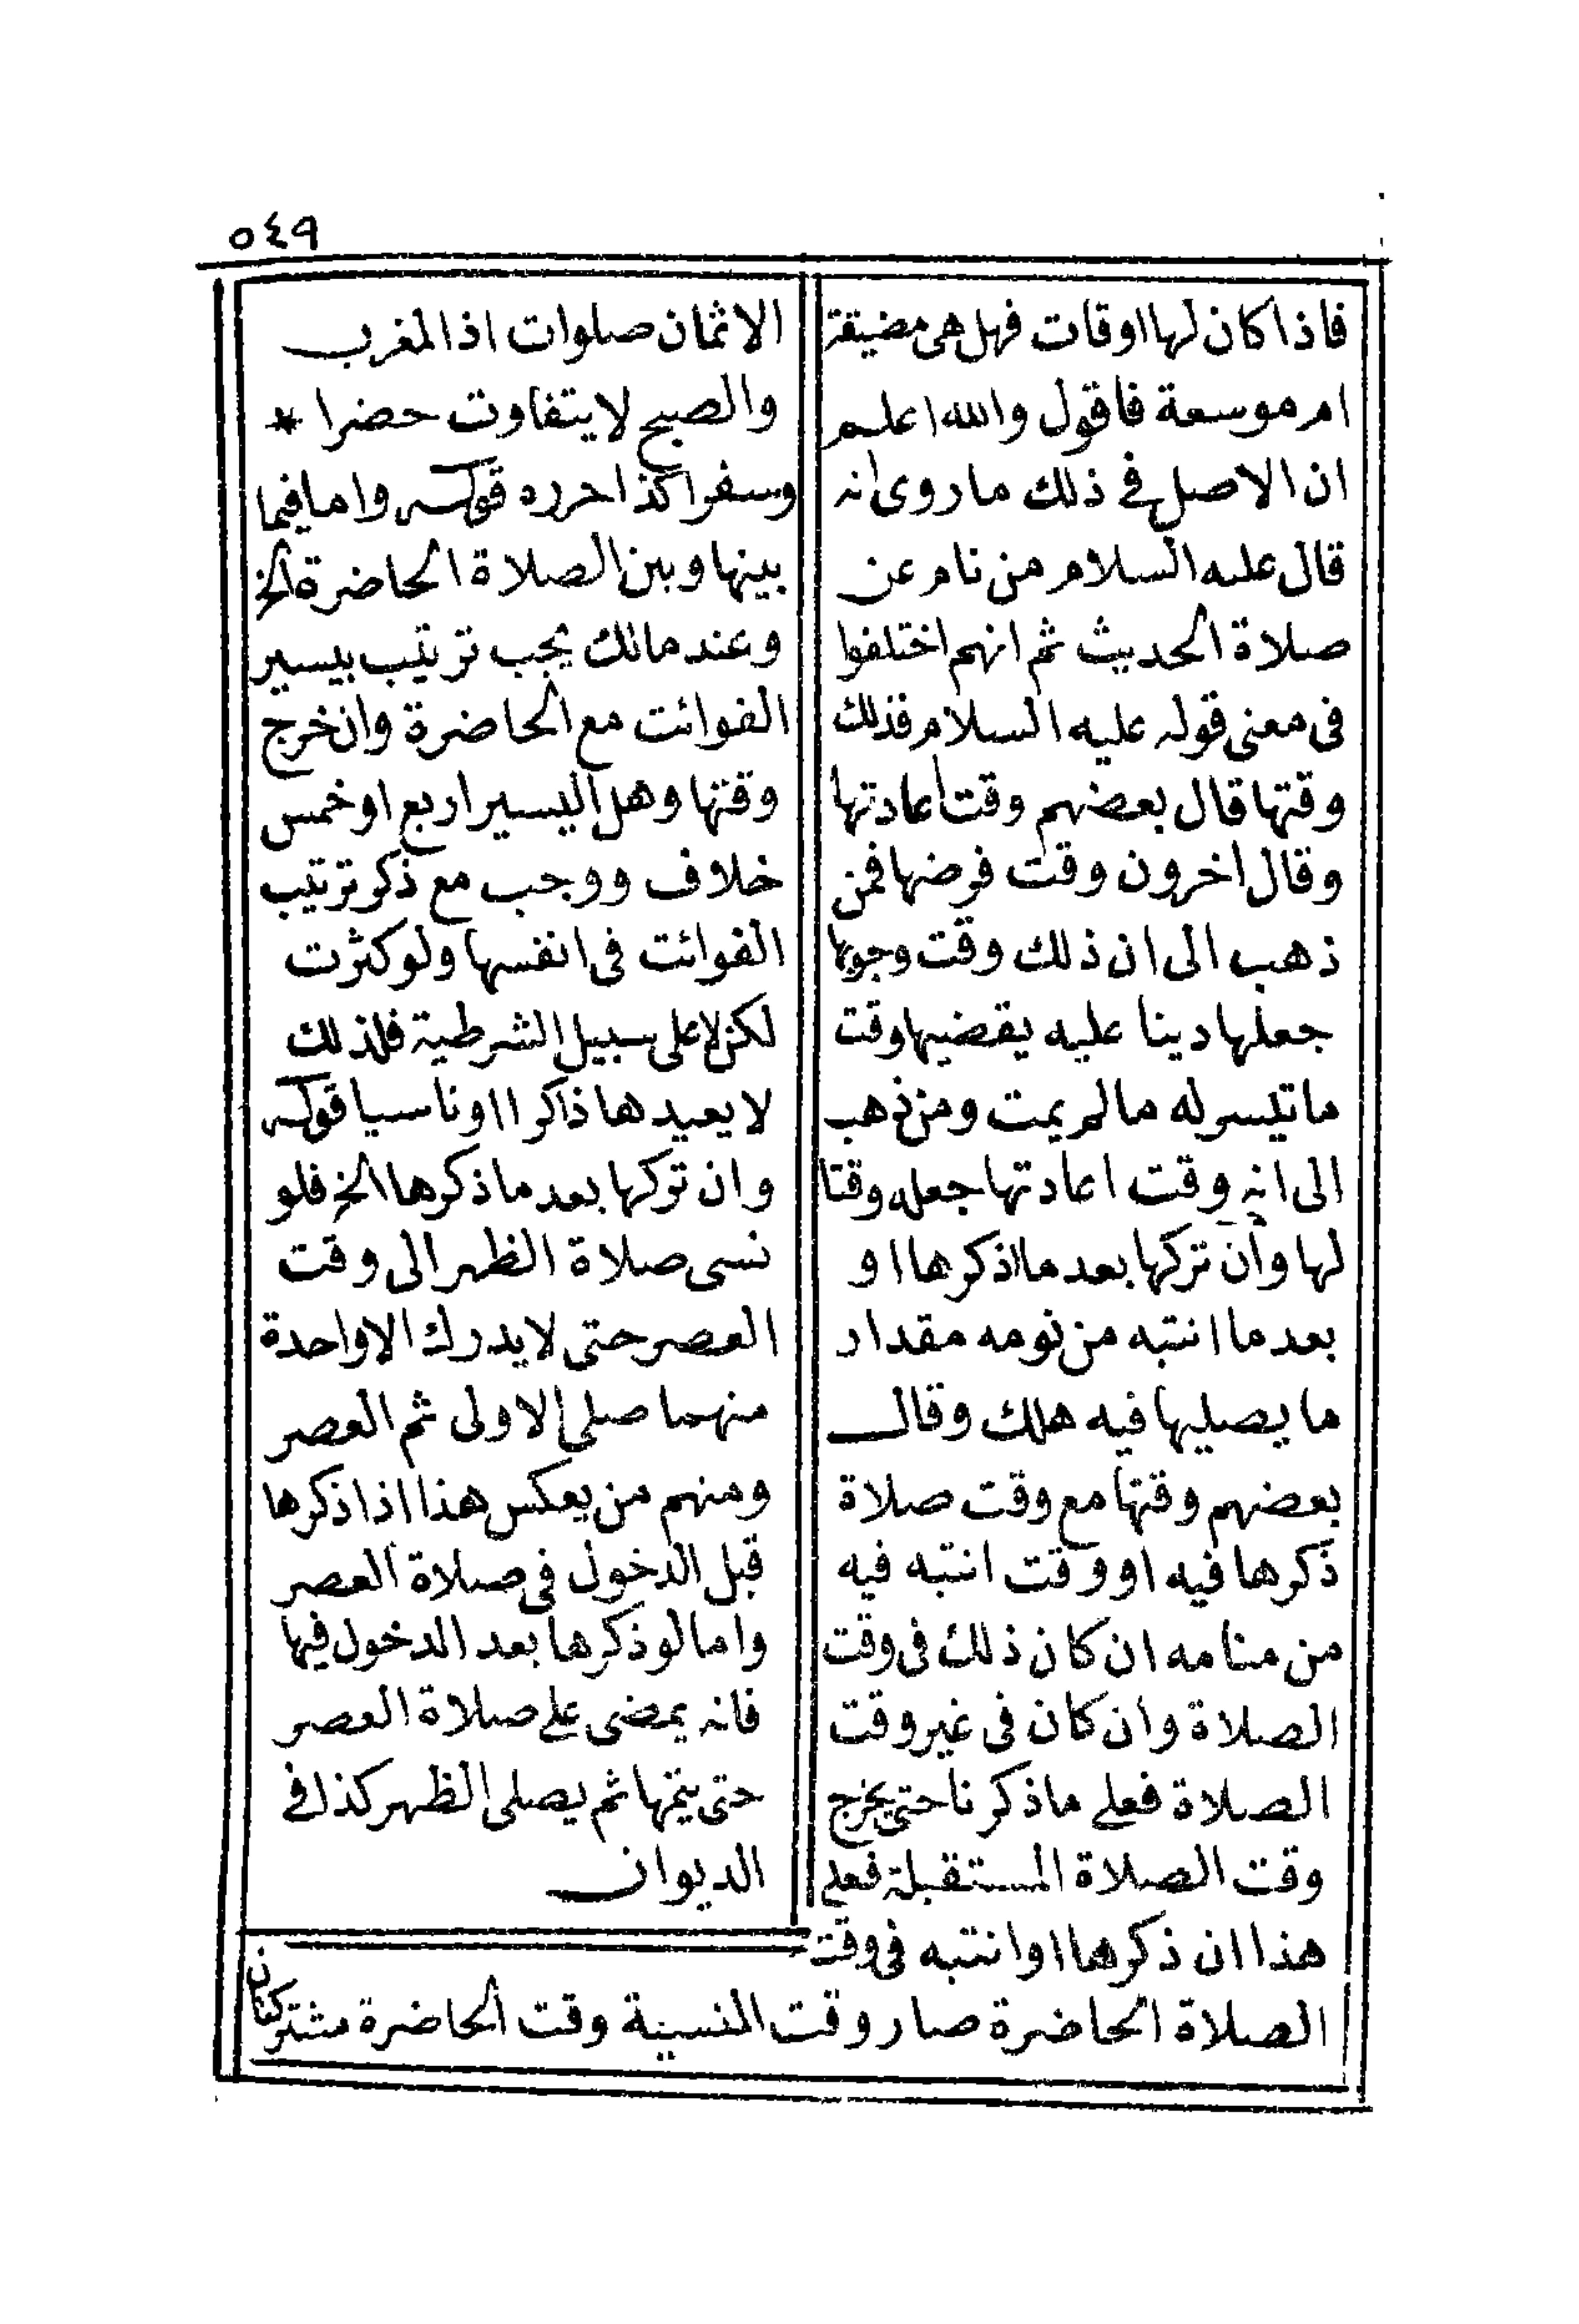 ٥٤٩
فاذا كان لها اوقات فهل هى مضيقة
ام موسعة فاقول والله اعلم
ان الاصل فى ذلك ما روى انه
قال عليه السلام من نام عن
صلاة الحديث ثم انهم اختلفوا
فى معنى قوله عليه السلام فذلك
وقتها قال بعضهم وقت اعادتها
وقال اخرون وقت فرضها فمن
ذهب الى ان ذلك وقت وجوبها
جعلها دينا عليه يقضيها وقت
ما تيسر له ما لم يمت ومن ذهب
الى انه وقت اعادتها جعله وقتا
لها وان تركها بعد ما اذكرها او
بعد ما انتبه من نومه مقدار
ما يصليها فيه هلك وقال
بعضهم وقتها مع وقت صلاة
ذكرها فيه او وقت انتبه فيه
من منامه ان كان ذلك فى وقت
الصلاة وان كان فى غير وقت
الصلاة فعلى ما ذكرنا حتى يخرج
وقت الصلاة المستقبلة فعلى
هذا ان ذكرها او انتبه فى وقت
الصلاة الحاضرة صار وقت المنسية وقت الحاضرة مشتركتان
الاثمان صلوات اذ المغرب
والصبح لا يتفاوت حضرا *
وسفرا كذا حرره قوله واما فيما
بينها وبين الصلاة الحاضرة الخ
وعند مالك يجب ترتيب بيسير
الفوائت مع الحاضرة وان خرج
وقتها وهل اليسير اربع او خمس
خلاف ووجب مع ذكر ترتيب
الفوائت فى انفسها ولو كثرت
لكن لا على سبيل الشرطية فلذلك
لا يعيدها ذاكرا او ناسيا قوله
وان تركها بعد ما ذكرها الخ فلو
نسى صلاة الظهر الى وقت
العصر حتى لا يدرك الا واحدة
منهما صلى الاولى ثم العصر
ومنهم من يعكس هذا اذا ذكرها
قبل الدخول فى صلاة العصر
واما لو ذكرها بعد الدخول فيها
فانه يمضى على صلاة العصر
حتى يتمها ثم يصلى الظهر كذا فى
الديوان